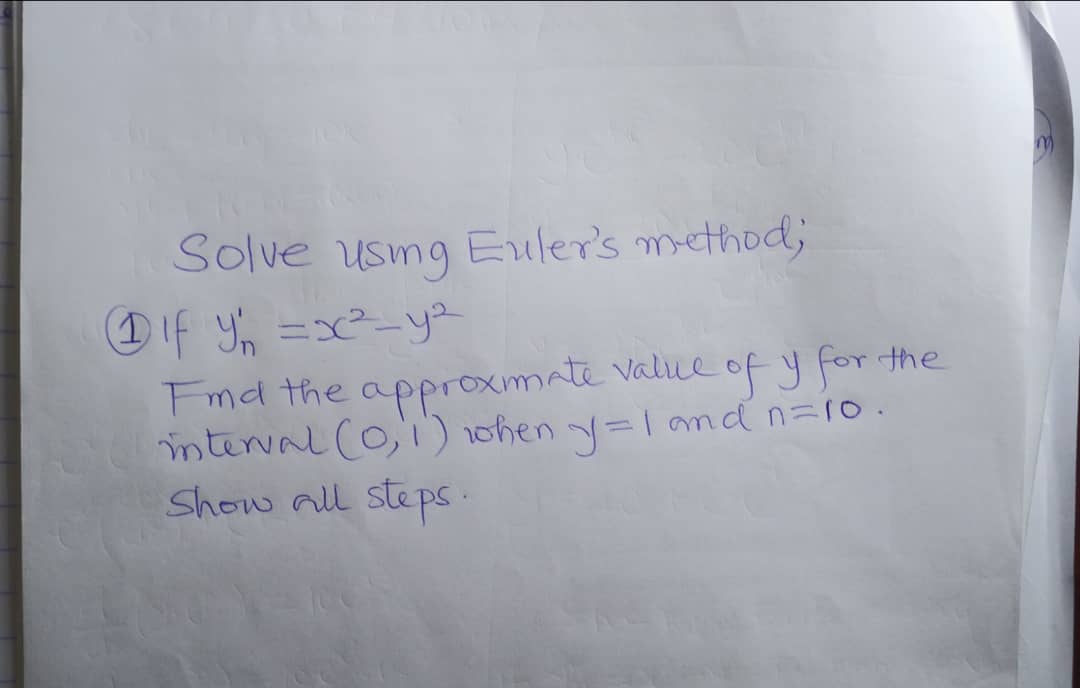 Solve using Euler's method;
① If y'n = x² - y²
Find the approximate value of y for the
interval (0,1) when y=1 and n=10.
Show all steps.